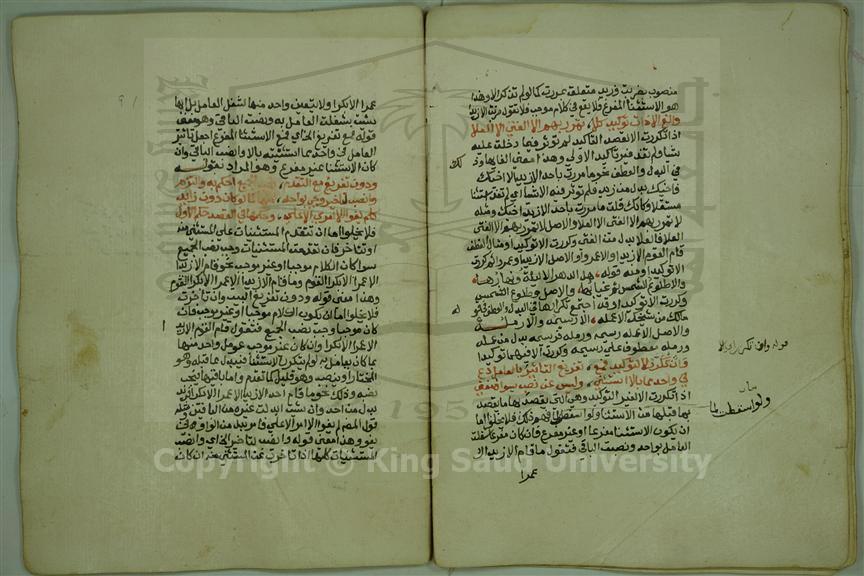 منصوب بضربت وزيد متعلقة بمررت كما لو لم تذكر الا وهذا
هو الاستثنا المفرغ فلا يقع في كلام موجب فلا تقول ضربت الا زيدا
والغ الا ذات توكيد كلا تمرر بهم الا الفتى الا العلا
اذا تكررت الا لقصد التاكيد لم تؤثر فيما دخلت عليه
شيا ولم تفد غير تاكيد الاولى وهذا معنى الغايها وذلك
في البدل والعطف نحو ما مررت باحد الا زيد الا اخيك
فاخيك بدل من زيد فلم تؤثر فيه الا شيا اي لم تفد استثنا
مستقلا وكانك قلت ما مررت باحد الا زيد اخيك ومثله
لا تمرر بهم الا الفتى الا العلا والاصل لا تمرر بهم الا الفتى
العلا فالعلا بدل من الفتى وكررت الا توكيدا ومثال العطف
قام القوم الا زيدا والا عمرا والاصل الا زيدا وعمرا ثم كررت
الا توكيدا ومنه قوله هل الدهر الا ليلة ونهارها
والا طلوع الشمس ثم غيارها والاصل وطلوع الشمس
وكررت الا توكيدا وقد اجتمع تكرارها في البدل والعطف في قوله
مالك من شيخك الا عمله الا رسيمه والا رمله
والاصل الا عمله رسيمه ورمله فرسيمه بدل من عمله
ورمله معطوف على رسيمه وكررت الا فيهما توكيدا
وان تكرر لا لتوكيد فمع تفريغ التاثير بالعامل دع
في واحد مما بالا استثني وليس عن نصب سواه مغني
اذا تكررت الا لغير التوكيد وهي التي يقصد بها ما يقصد
بما قبلها من الاستثنا ولو اسقطت لما فهم ذلك فلا يخلوا اما
ان يكون الاستثنا مفرغا او غير مفرغ فان كان مفرغا شغلت
العامل بواحد ونصبت الباقي فتقول ما قام الا زيد الا
عمرا
قوله وان تكرر
ولو اسقطت لما
عمرا الا بكرا ولا يتعين واحد منها لشغل العامل بل ايها
شئت شغلت العامل به ونصبت الباقي وهو معنى
قوله فمع تفريغ الى اخره اي مع الاستثنا المفرغ اجعل تاثير
العامل في واحد مما استثنيته بالا وانصب الباقي وان
كان الاستثنا غير مفرغ وهو المراد بقوله
ودون تفريغ مع التقدم نصب الجميع احكم به والتزم
وانصب لتاخير وجئ بواحد منها كما لو كان دون زايد
كلم يفوا الا امرؤ الا علي وحكمها في القصد حكم الاول
فلا يخلوا اما ان تتقدم المستثنيات على المستثنى منه
او تتاخر فان تقدمت المستثنيات وجب نصب الجميع
سوا كان الكلام موجبا او غير موجب نحو قام الا زيدا
الا عمرا الا بكرا القوم وما قام الا زيدا الا عمرا الا بكرا القوم
وهذا معنى قوله ودون تفريغ البيت وان تاخرت
فلا يخلوا اما ان يكون الكلام موجبا او غير موجب فان
كان موجبا وجب نصب الجميع فتقول قام القوم الا زيدا
الا عمرا الا بكرا وان كان غير موجب عومل واحد منها
بما كان يعامل به لو لم يتكرر الاستثنا فيبدل مما قبله وهو
المختار او ينصب وهو قليل كما تقدم واما باقيها فيجب
نصبه وذلك نحو ما قام احد الا زيد الا عمرا الا بكرا فزيد
بدل من احد وان شئت ابدلت غيره من الباقين ومثله
قول المصنف لم يفوا الا امرؤ الا علي فامرؤ بدل من الواو في
يفوا وهذا معنى قوله وانصب لتاخير الى اخره اي وانصب
المستثنيات كلها اذا تاخرت عن المستثنى منه ان كان
Copyright © King Saud University
195